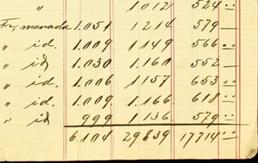 " 1012 524 "
manada 1.051 1214 579 —
" id. 1.009 1149 566 "
" id. 1.030 1.160 552 —
" id. 1.006 1157 653 "
" id. 1.009 1.166 618 "
" id 999 1136 579 "
6.104 29839 17714 "